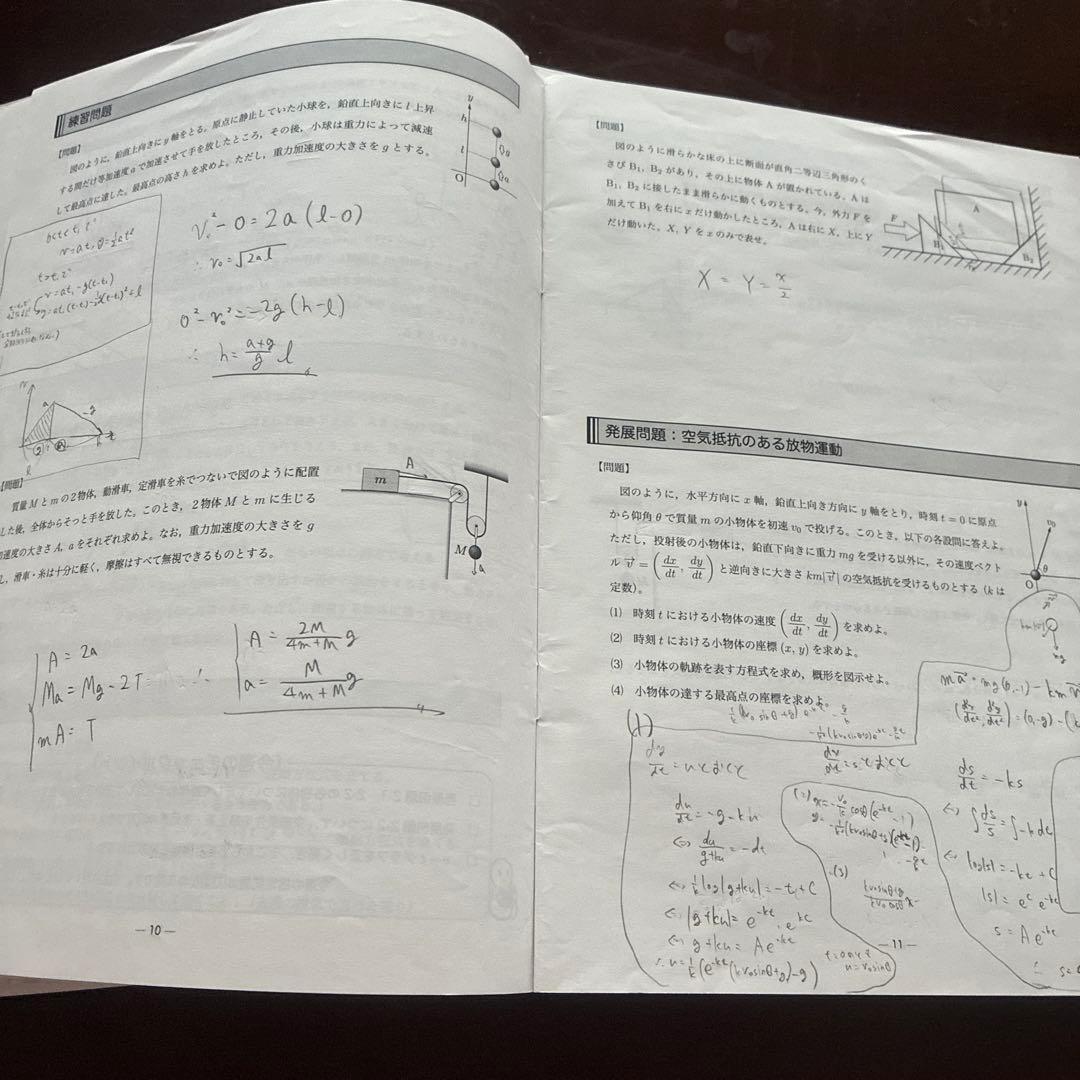 練習問題
【問題】
図のように，鉛直上向きに y 軸をとる。原点に静止していた小球を，鉛直上向きに l 上昇
する間だけ等加速度 a で加速させて手を放したところ，その後，小球は重力によって減速
して最高点に達した。最高点の高さ h を求めよ。ただし，重力加速度の大きさを g とする。
y
h
l
O
g
a
v=at, y=½at²
v=at₁-g(t-t₁)
v₀²-0=2a(l-0)
∴ v₀=√2al
0²-v₀²=-2g(h-l)
∴ h=(a+g)/g l
【問題】
質量 M と m の2物体，動滑車，定滑車を糸でつないで図のように配置
した後，全体からそっと手を放した。このとき，2物体 M と m に生じる
加速度の大きさ A, a をそれぞれ求めよ。なお，重力加速度の大きさを g
し，滑車・糸は十分に軽く，摩擦はすべて無視できるものとする。
A
m
M
a
A=2a
Ma=Mg-2T
mA=T
∴
A=2M/(4m+M) g
a=M/(4m+M) g
— 10 —
【問題】
図のように滑らかな床の上に断面が直角二等辺三角形のく
さび B₁, B₂ があり，その上に物体 A が置かれている。A は
B₁, B₂ に接したまま滑らかに動くものとする。今，外力 F を
加えて B₁ を右に x だけ動かしたところ，A は右に X, 上に Y
だけ動いた。X, Y を x のみで表せ。
F
A
B₁
B₂
X=Y=x/2
発展問題：空気抵抗のある放物運動
【問題】
図のように，水平方向に x 軸，鉛直上向き方向に y 軸をとり，時刻 t=0 に原点
から仰角 θ で質量 m の小物体を初速 v₀ で投げる。このとき，以下の各設問に答えよ。
ただし，投射後の小物体は，鉛直下向きに重力 mg を受ける以外に，その速度ベクト
ル v⃗=(dx/dt, dy/dt) と逆向きに大きさ km|v⃗| の空気抵抗を受けるものとする（k は
定数）。
(1) 時刻 t における小物体の速度 (dx/dt, dy/dt) を求めよ。
(2) 時刻 t における小物体の座標 (x, y) を求めよ。
(3) 小物体の軌跡を表す方程式を求め，概形を図示せよ。
(4) 小物体の達する最高点の座標を求めよ。
y
v₀
θ
O
mg
(1)
dy/dt=uとおくと
du/dt=-g-ku
⇔ du/(g+ku)=-dt
⇔ 1/k log|g+ku|=-t+C
⇔ |g+ku|=e^-kt・e^kC
⇔ g+ku=Ae^-kt
∴ u=1/k(e^-kt(kv₀sinθ+g)-g)
u=v₀sinθ
(2)
(3)
ds/dt=-ks
⇔ ∫ds/s=∫-kdt
⇔ log|s|=-kt+C
|s|=e^c e^-kt
s=Ae^-kt
— 11 —